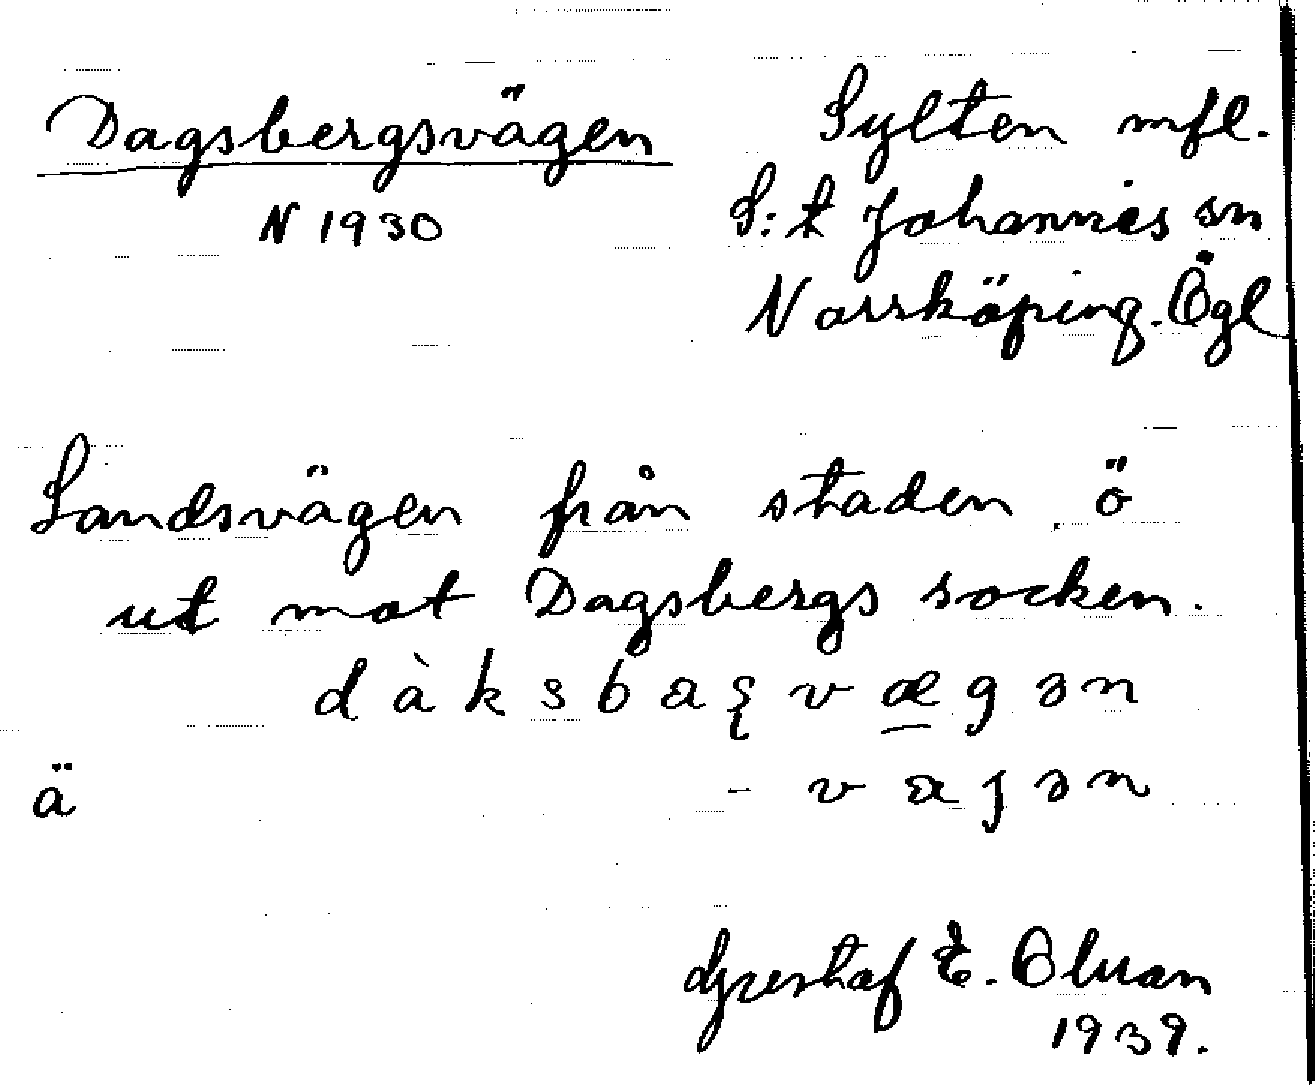 Dagsbergsvägen
N 1930
Sylten mfl.
S:t Johannes sn
Norrköping. Ögl
Landsvägen från staden ö
ut mot Dagsbergs socken.
dàksbaʂvægən
ä - vajən
E. Olsson
1939.